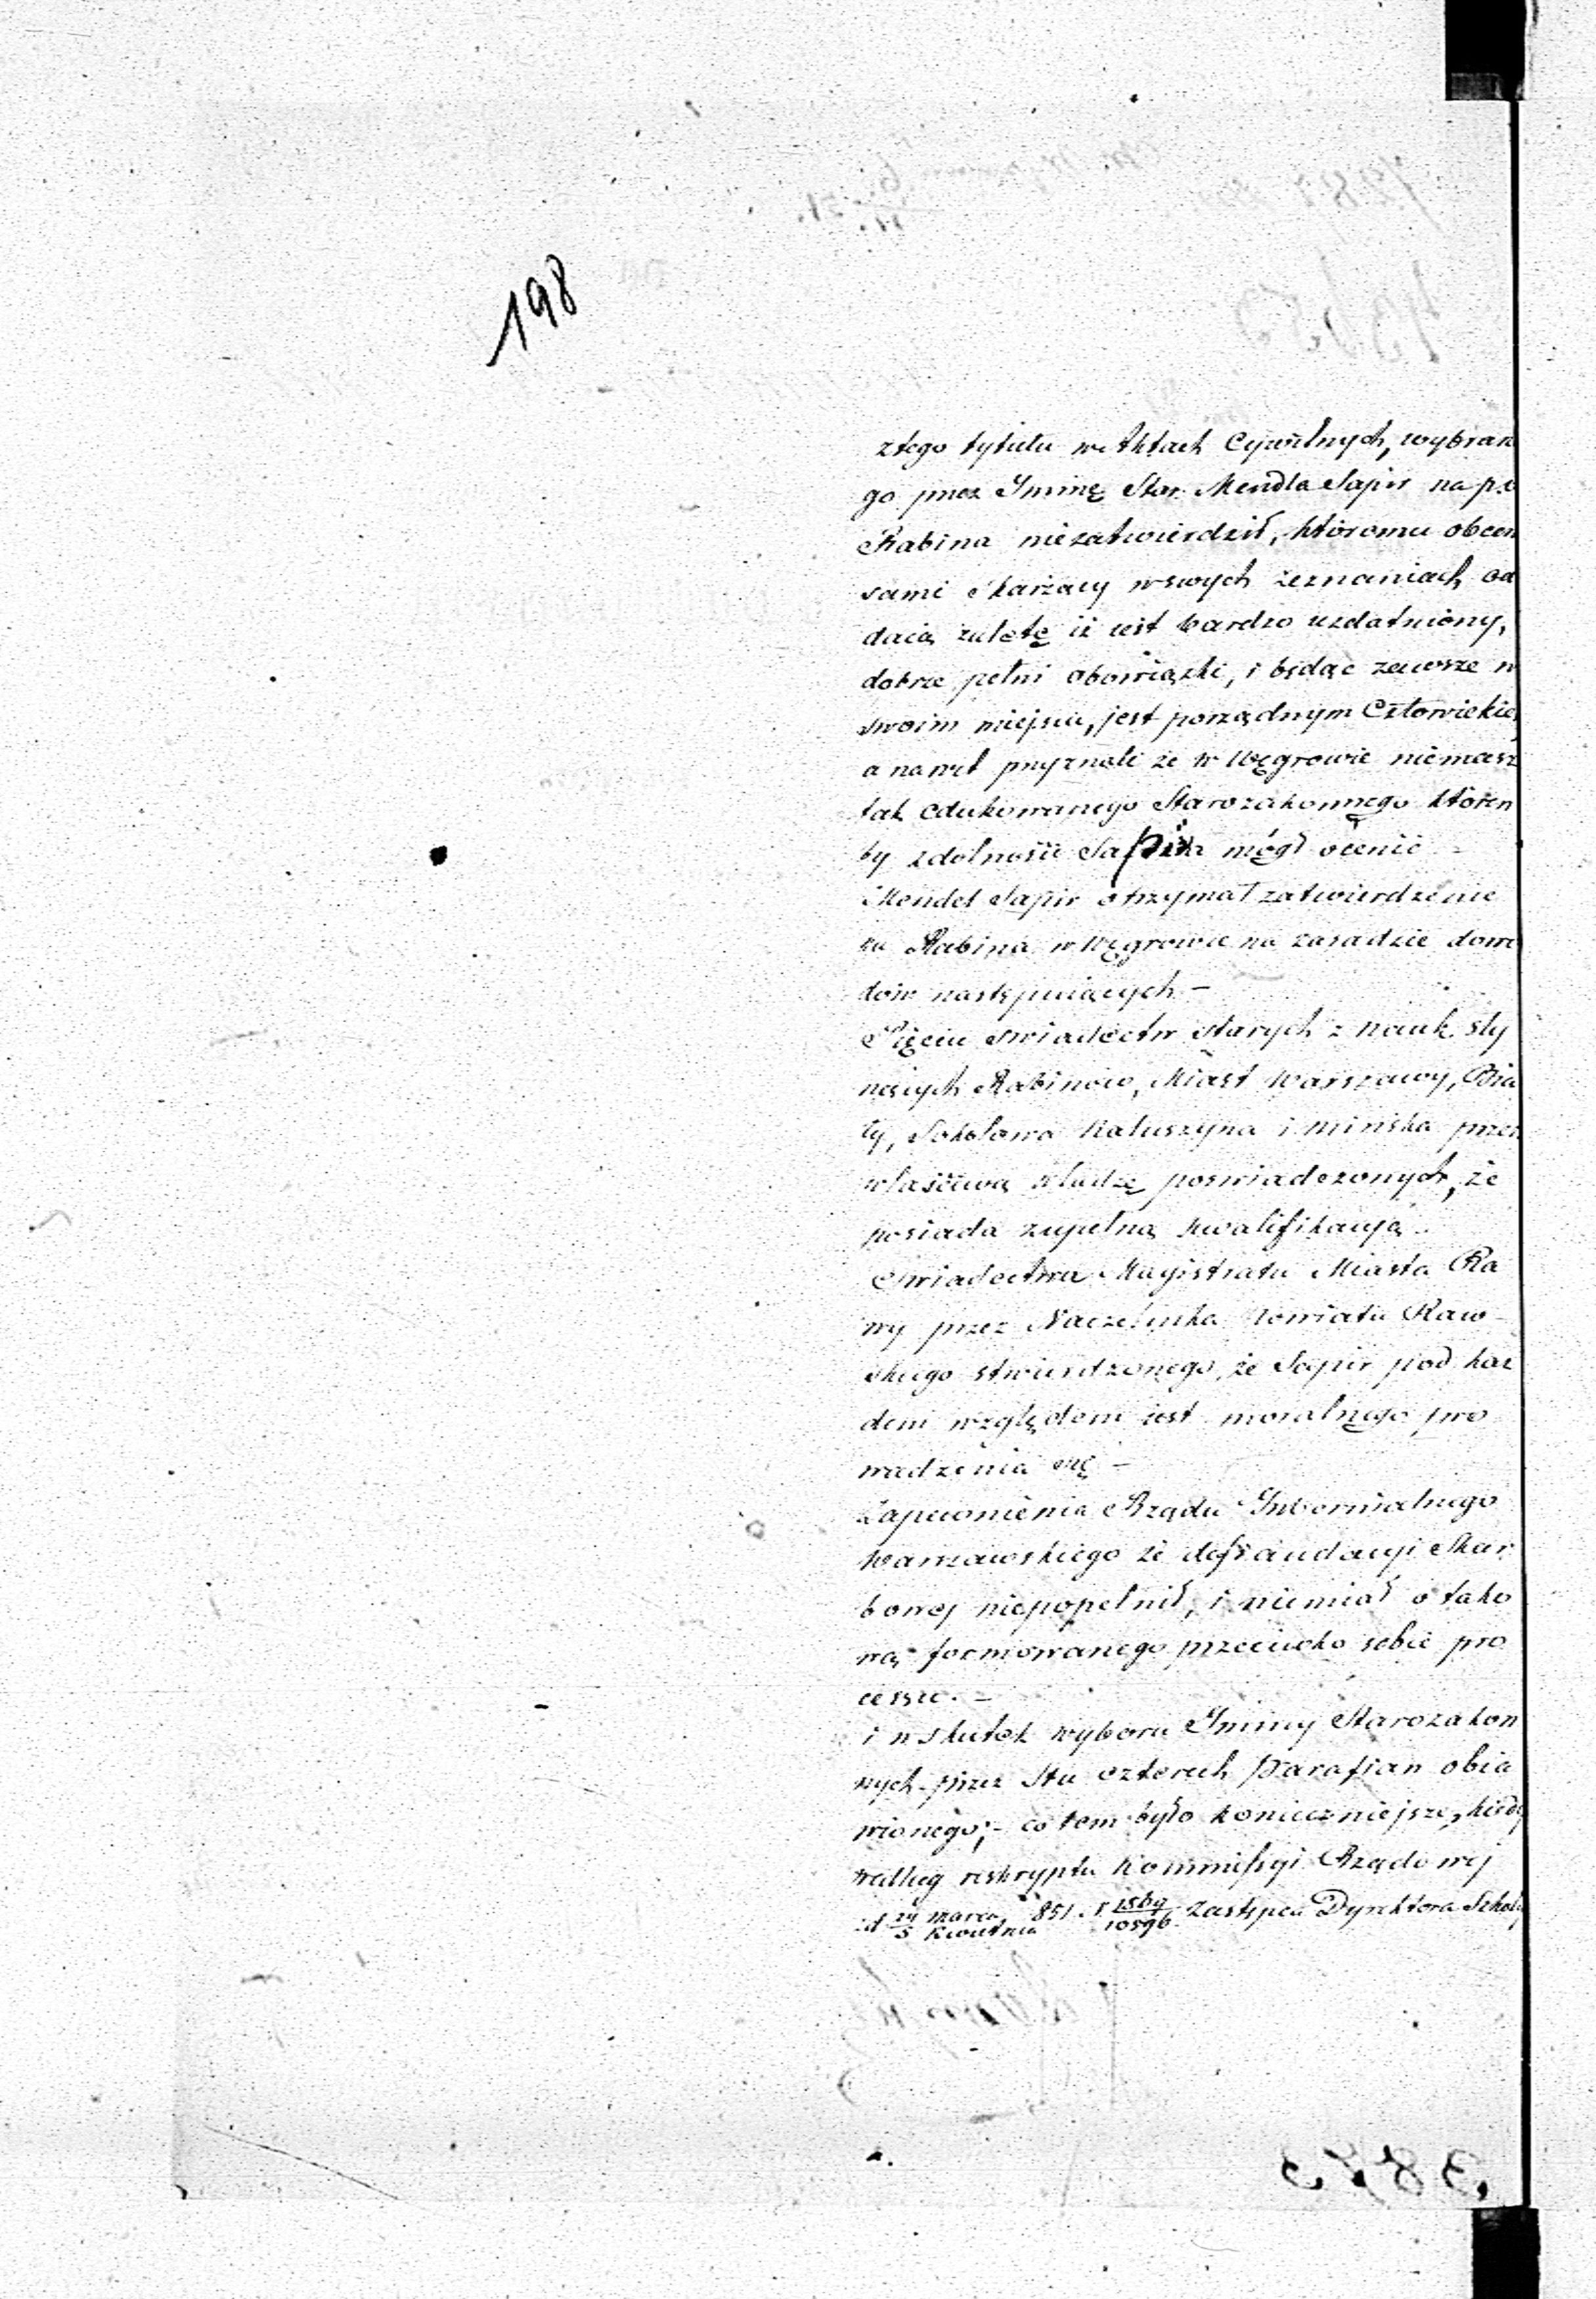 198
z tego tytułu w Aktach Cywilnych, wybran
go przez Gminę Star. Mendla Sapir na p.o
Rabina niezatwierdził, któromu obcen
sami skarżący w swych zeznaniach od
daią zaletę iż iest bardzo uzdatniony,
dobrze pełni obowiązki, i będąc zawsze w
swoim miejscu, jest porządnym Człowiekie
a nawet przyznali że w Węgrowie niemasz
tak edukowanego Starozakonnego któren
by zdolności Sapira mógł ocenić –
Mendel Sapir otrzymał zatwierdzenie
na Rabina w Węgrowie na zasadzie dowo
dów następuiących –
Pięciu świadectw starych z nauk sły
nących Rabinów, Miast Warszawy, Bia
ły, Sokołowa Kałuszyna i Mińska przez
właściwą władzę poswiadczonych, że
posiada zupełną kwalifikacyą –
Swiadectwa Magistratu Miasta Ra
wy przez Naczelnika Powiatu Raw
skiego stwierdzonego, że Sapir pod każ
dem względem iest moralnego pro
wadzenia się –
Zapewnienia Rządu Gubernialnego
Warszawskiego że defraudacyi Skar
bowej niepopełnił, i niemiał o tako
wą formowanego przeciwko sobie pro
cessu. –
i w skutek wyboru Gminy Starozakon
nych przez Stu czterech Parafian obia
wionego; – co tem było konieczniejsze, kiedy
według reskryptu Kommissyi Rządowej
z d 24 Marca / 5 Kwietnia 851 r. 1569 / 10596 Zastępca Dyrektora Szkoły